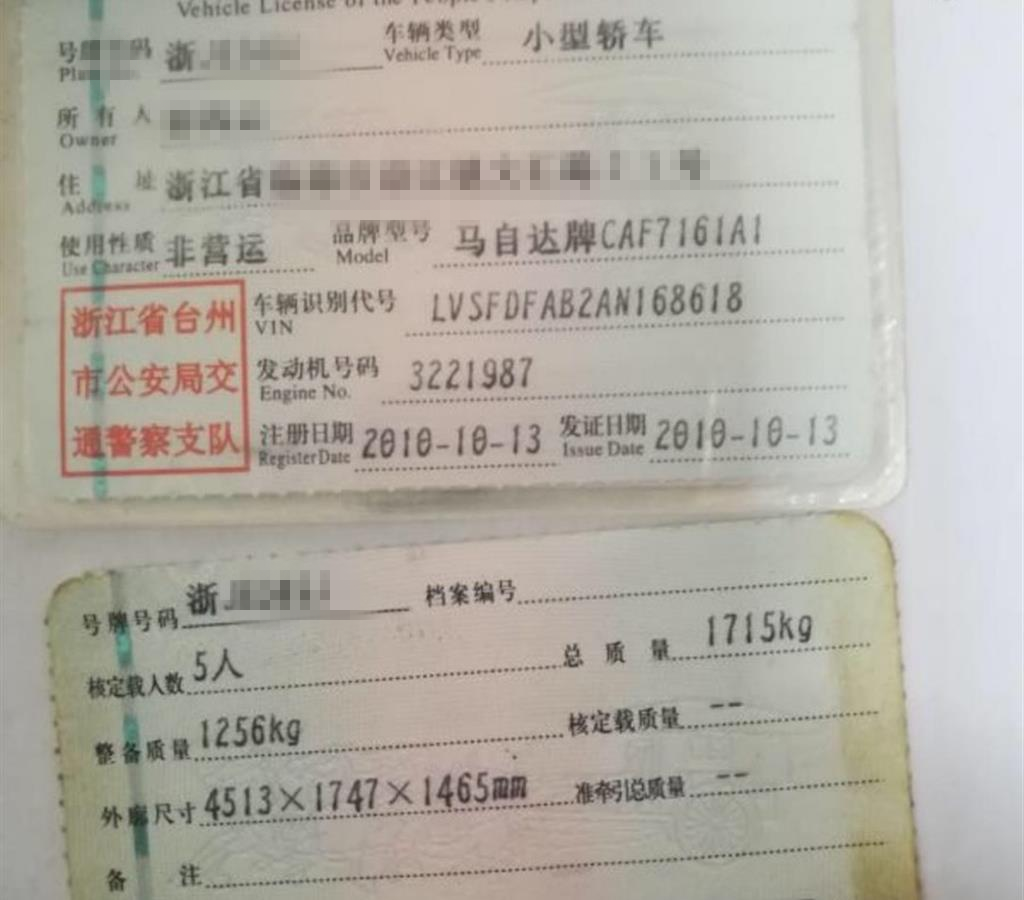 Vehicle License of the People's
号 码 浙 车辆类型 小型轿车
Vehicle Type
所有人
Owner
住址 浙江省
Address
使用性质 非营运 品牌型号 马自达牌CAF7161A1
Use Character Model
浙江省台州 车辆识别代号 LVSFDFAB2AN168618
VIN
市公安局交 发动机号码 3221987
Engine No.
通警察支队 注册日期 2010-10-13 发证日期 2010-10-13
Register Date Issue Date
号牌号码 浙 档案编号
核定载人数 5人 总质量 1715kg
整备质量 1256kg 核定载质量 --
外廓尺寸 4513×1747×1465mm 准牵引总质量 --
备注